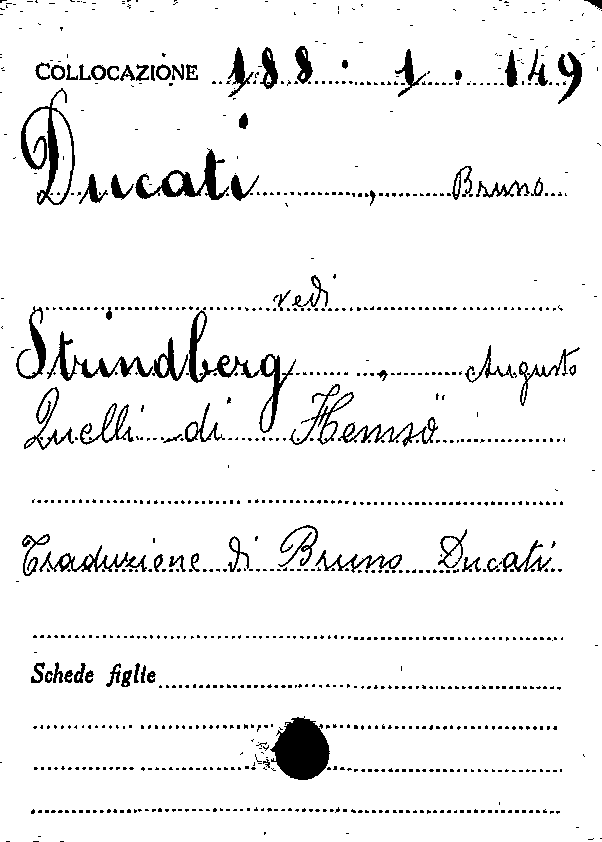 COLLOCAZIONE 188 . 1 . 149
Ducati , Bruno
vedi
Strindberg , Augusto
Quelli di Hemsö
Traduzione di Bruno Ducati
Schede figlie